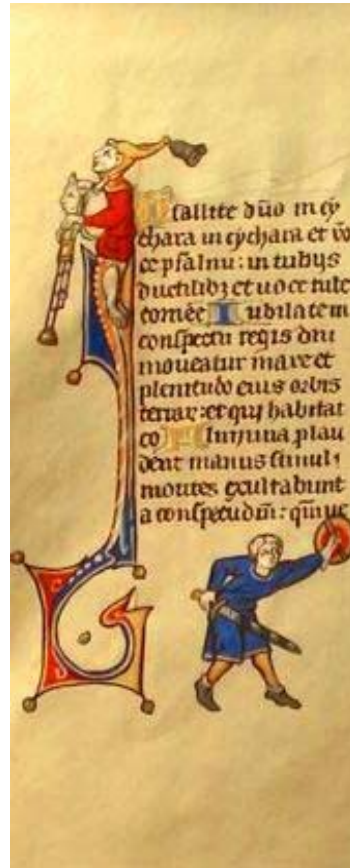 Psallite dño in cy
thara in cythara et vo
ce psalmi: in tubijs
ductilibȝ et uoce tube
cornee Iubilate in
conspectu regis dni
moueatur mare et
plenitudo eius orbis
terrar: et qui habitāt
eo Flumina plau
dent manus simul
montes exultabunt
a conspectu dñi: qm̄ ue